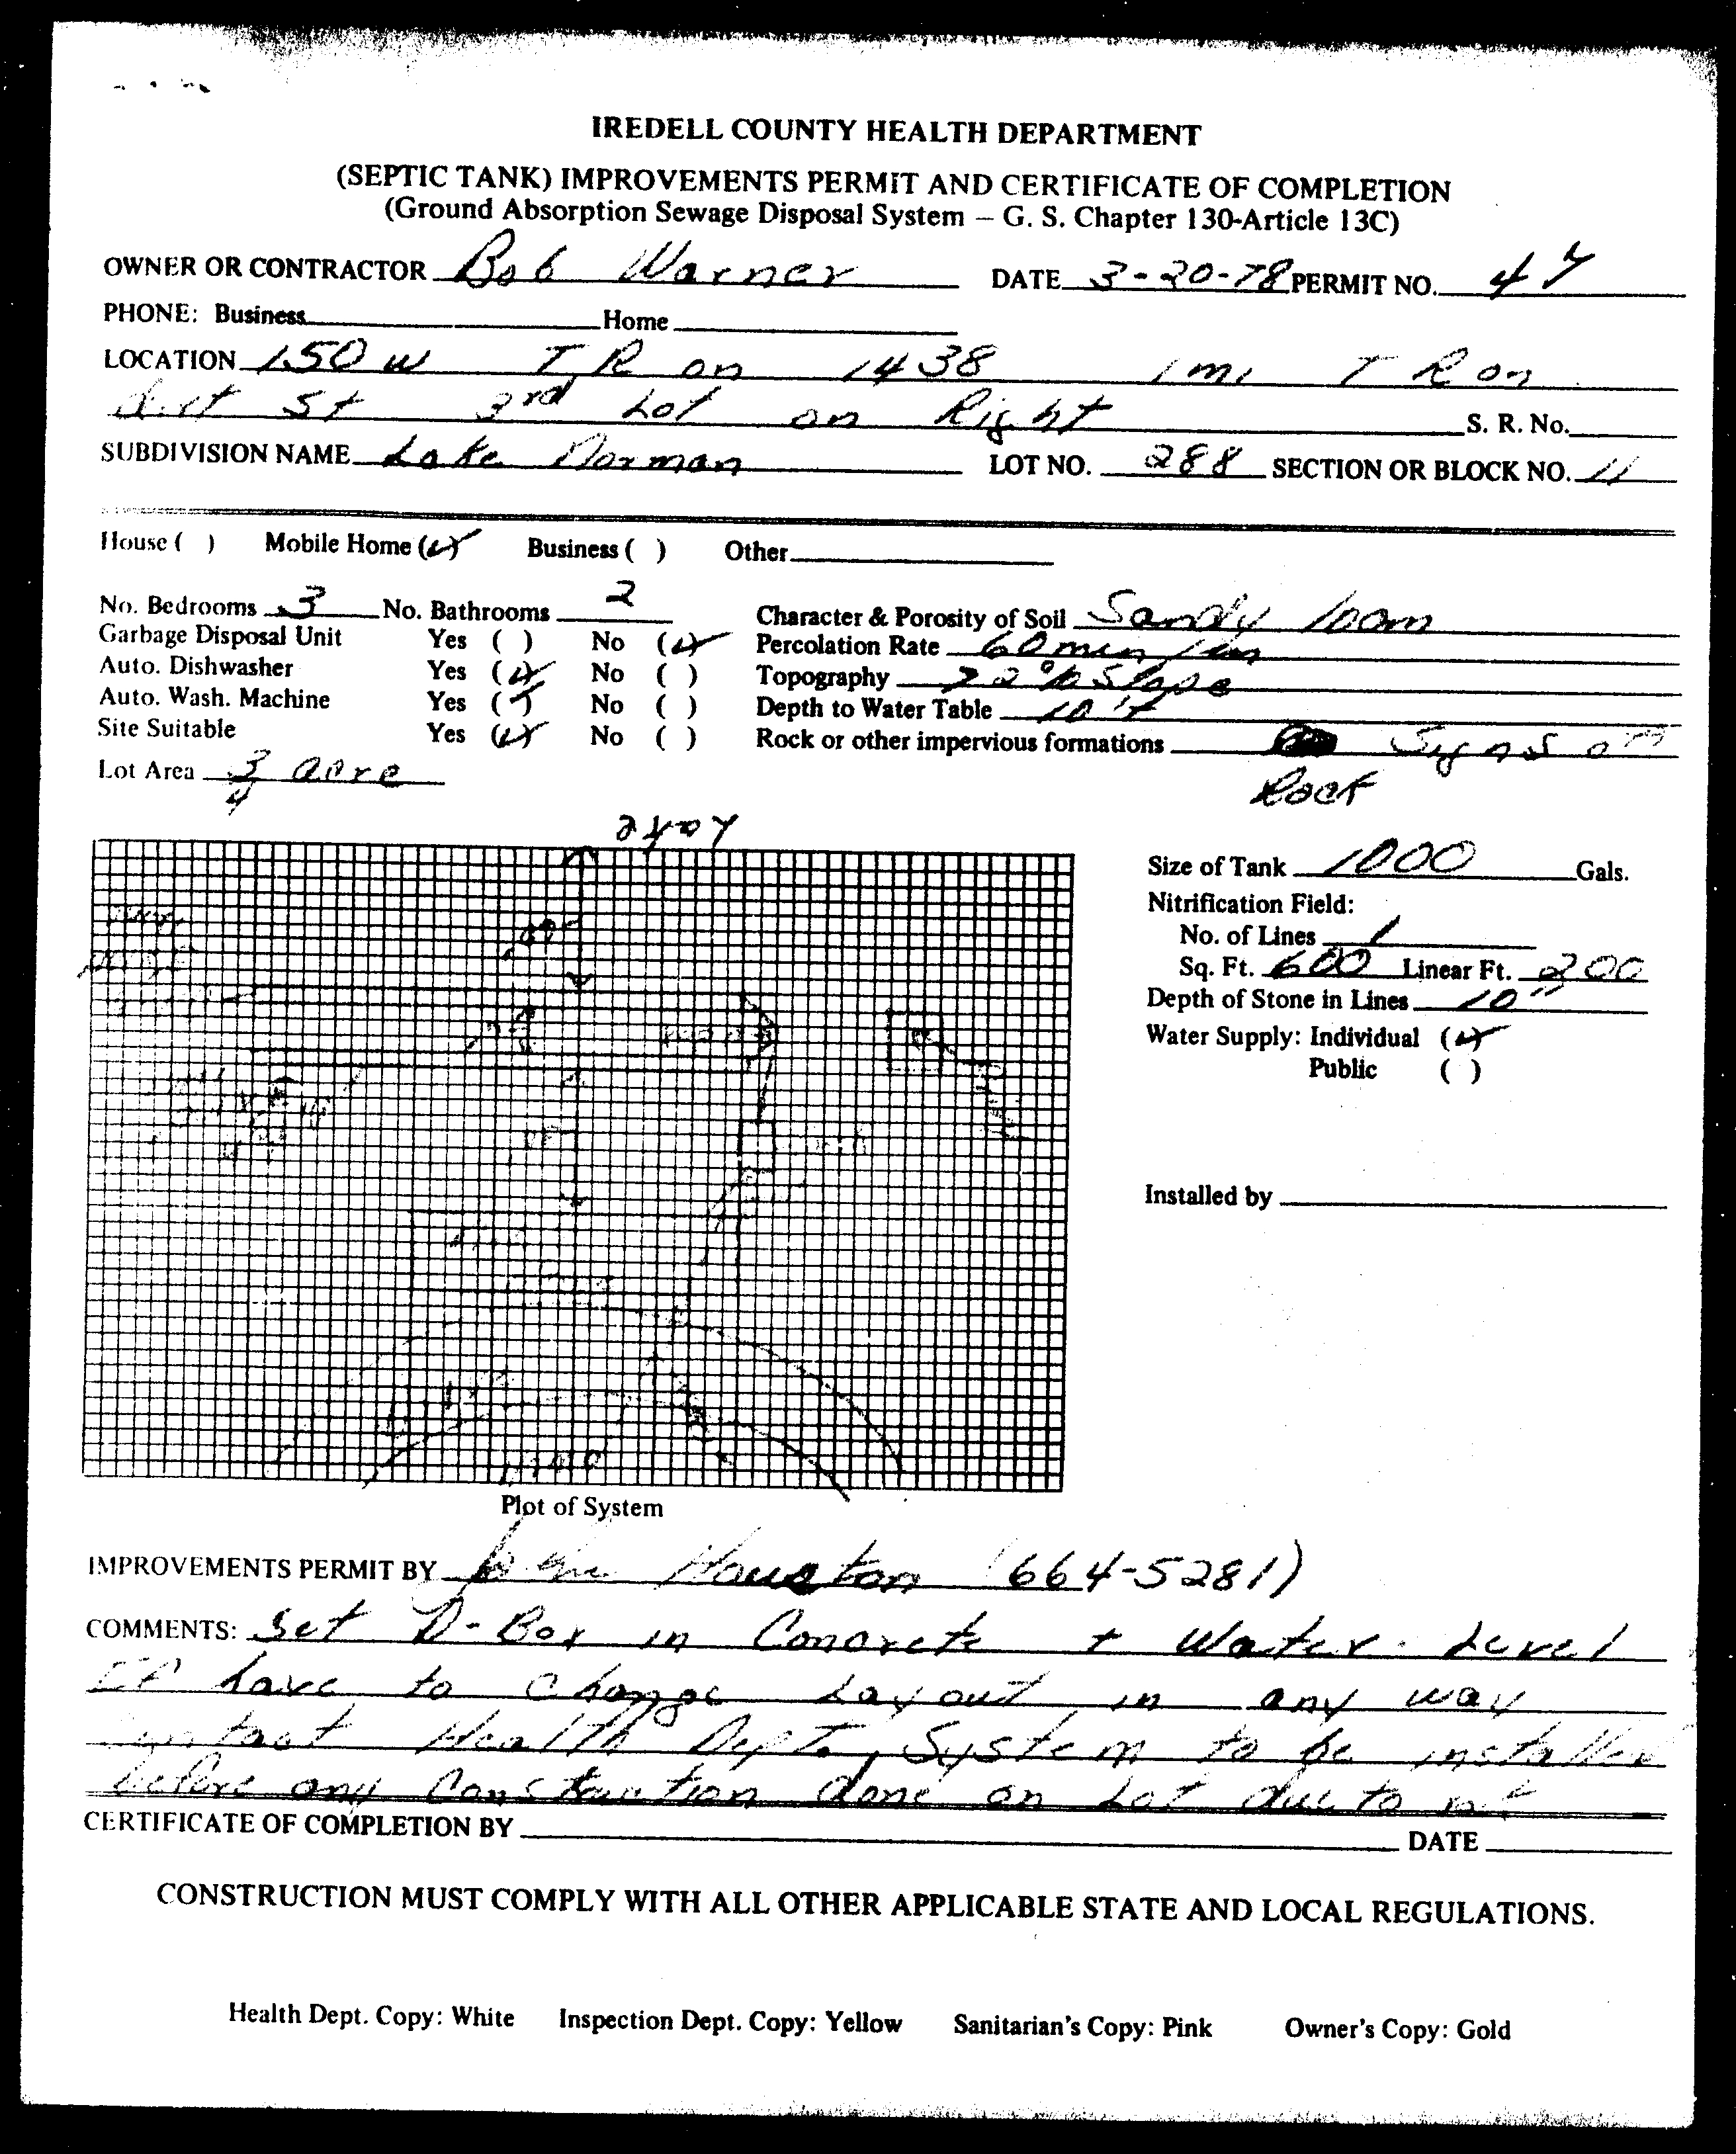 IREDELL COUNTY HEALTH DEPARTMENT
(SEPTIC TANK) IMPROVEMENTS PERMIT AND CERTIFICATE OF COMPLETION
(Ground Absorption Sewage Disposal System – G. S. Chapter 130-Article 13C)
OWNER OR CONTRACTOR Bob Warner DATE 3-20-78 PERMIT NO. 47
PHONE: Business Home
LOCATION 150 W T R on 1438 1 mi T R on
dirt St 3rd Lot on Right S. R. No.
SUBDIVISION NAME Lake Norman LOT NO. 288 SECTION OR BLOCK NO. 11
House ( ) Mobile Home (✓) Business ( ) Other
No. Bedrooms 3 No. Bathrooms 2 Character & Porosity of Soil Sandy loam
Garbage Disposal Unit Yes ( ) No (✓) Percolation Rate 60 min / in
Auto. Dishwasher Yes (✓) No ( ) Topography > 2% Slope
Auto. Wash. Machine Yes (✓) No ( ) Depth to Water Table 10'+
Site Suitable Yes (✓) No ( ) Rock or other impervious formations Signs of
Lot Area 3/4 acre Rock
Lake
Size of Tank 1000 Gals.
Nitrification Field:
No. of Lines 1
Sq. Ft. 600 Linear Ft. 200
Depth of Stone in Lines 10"
Water Supply: Individual (✓)
Public ( )
Installed by
Plot of System
IMPROVEMENTS PERMIT BY John Houston (664-5281)
COMMENTS: Set D-Box in Concrete + Water Level
If have to change Layout in any way
Contact Health Dept. System to be installed
before any Construction done on Lot due to
CERTIFICATE OF COMPLETION BY DATE
CONSTRUCTION MUST COMPLY WITH ALL OTHER APPLICABLE STATE AND LOCAL REGULATIONS.
Health Dept. Copy: White Inspection Dept. Copy: Yellow Sanitarian's Copy: Pink Owner's Copy: Gold